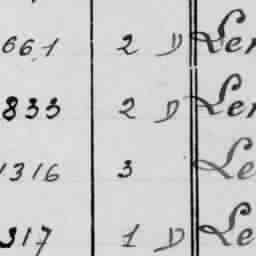 661 2 D Ler
833 2 D Ler
1316 3 Le
317 1 D Le